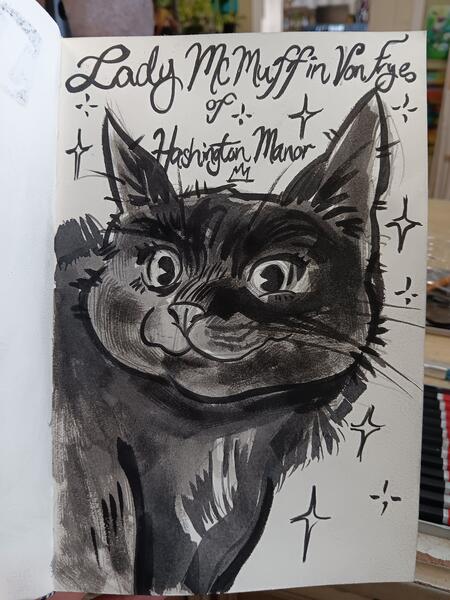 Lady McMuffin Von Frye
of
Hashington Manor